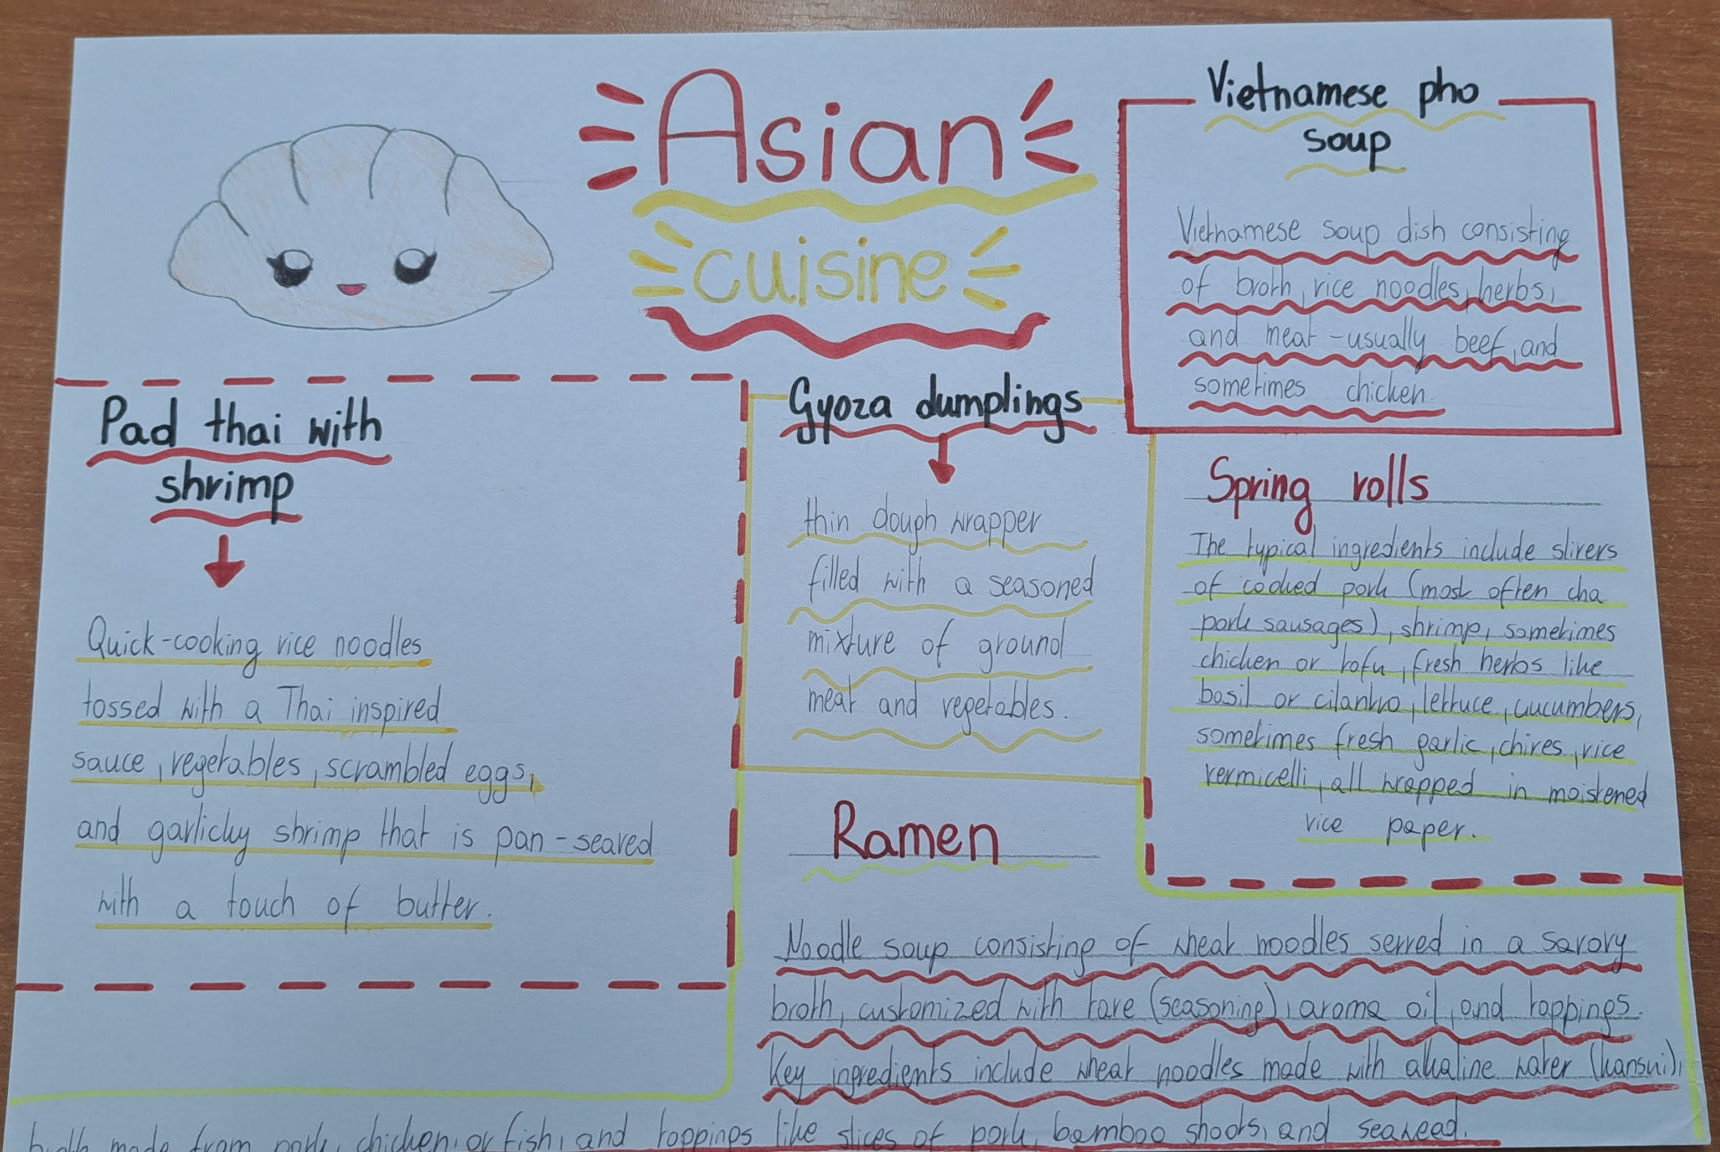 Asian
cuisine
Vietnamese pho
soup
Vietnamese soup dish consisting
of broth, rice noodles, herbs,
and meat - usually beef, and
sometimes chicken.
Pad thai with
shrimp
Quick-cooking rice noodles
tossed with a Thai inspired
sauce, vegetables, scrambled eggs,
and garlicky shrimp that is pan-seared
with a touch of butter.
Gyoza dumplings
thin dough wrapper
filled with a seasoned
mixture of ground
meat and vegetables.
Spring rolls
The typical ingredients include slivers
of cooked pork (most often cha
pork sausages), shrimp, sometimes
chicken or tofu, fresh herbs like
basil or cilantro, lettuce, cucumbers,
sometimes fresh garlic, chives, rice
vermicelli, all wrapped in moistened
rice paper.
Ramen
Noodle soup consisting of wheat noodles served in a savory
broth, customized with tare (seasoning), aroma oil, and toppings.
Key ingredients include wheat noodles made with alkaline water (kansui),
broth made from pork, chicken, or fish, and toppings like slices of pork, bamboo shoots, and seaweed.